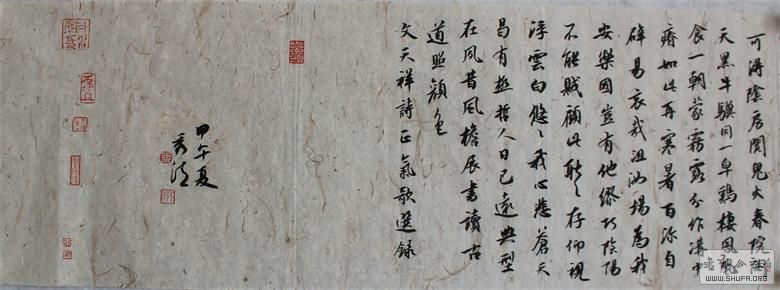 可得陰房闃鬼火春院閟
天黑牛驥同一皁鷄棲鳳凰
食一朝蒙霧露分作溝中
瘠如此再寒暑百沴自
辟易哀哉沮洳場為我
安樂國豈有他繆巧陰陽
不能賊顧此耿〻存仰視
浮雲白悠〻我心悲蒼天
曷有極哲人日已遠典型
在夙昔風檐展書讀古
道照顏色
文天祥詩正氣歌選録
甲午夏
WWW.SHUFA.ORG